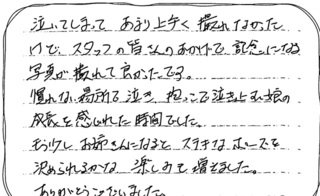 泣いてしまって あまり上手く 撮れなかった
ので、スタッフの皆さんのおかげで 記念になる
写真が撮れて良かったです。
慣れない場所で泣き、抱っこで泣き止む娘の
成長を感じれた時間でした。
もう少しお姉さんになると ステキなポーズを
決められるかな 楽しみも増えました。
ありがとうございました。